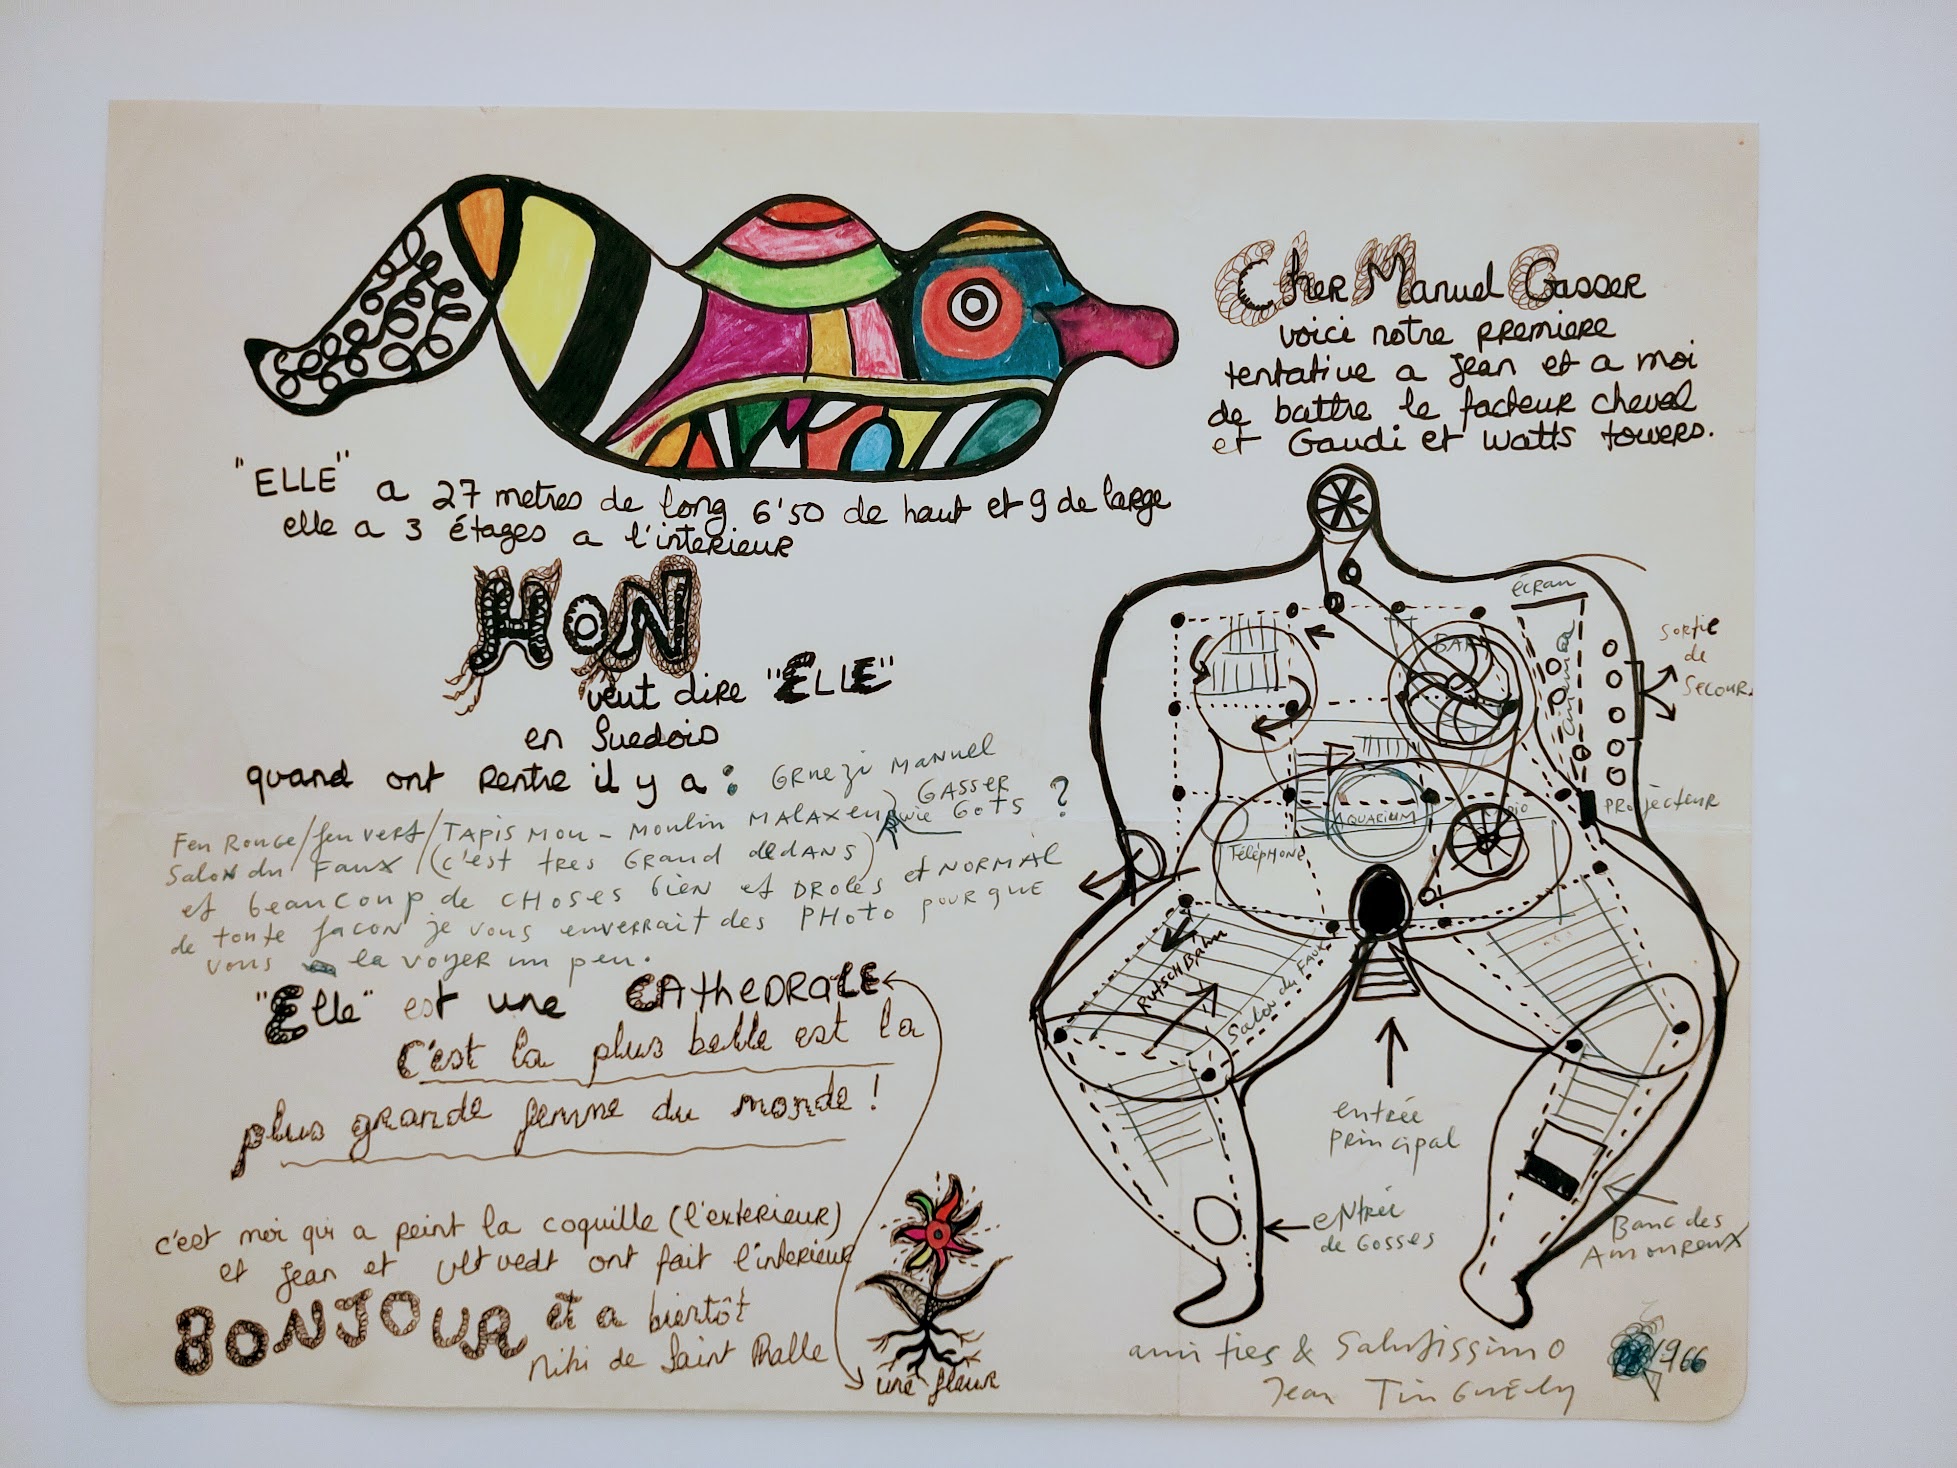 Cher Manuel Gasser
voici notre premiere
tentative a Jean et a moi
de battre le facteur cheval
et Gaudi et Watts towers.
"ELLE" a 27 metres de long 6'50 de haut et 9 de large
elle a 3 étages a l'interieur
HON
veut dire "ELLE"
en Suedois
quand ont rentre il y a :
GRUEZi MANUEL
GASSER
wie GOTS ?
Feu Rouge/feu vert/TAPIS MOU - MOULIN MALAXEUR
Salon du FAUX (c'est tres GRAND dedANS)
et beaucoup de CHOSES bien et DROLES et NORMAL
de toute facon je vous enverrait des PHOTO pour que
vous la VOYER un peu.
"Elle" est une CAtheDRALE
C'est la plus belle est la
plus grande femme du monde !
c'est moi qui a peint la coquille (l'exterieur)
et Jean et Ultvedt ont fait l'interieur
BONJOUR et a bientôt
Niki de Saint Phalle
une fleur
écran
BAR
Cinema
Sortie
de
Secour
PROjecteur
AQUARIUM
Téléphone
RutschBahn
Salon du Faux
entrée
principal
eNtrée
de Gosses
Banc des
Amoureux
amities & Salutissimo
Jean TinGuEly
1966